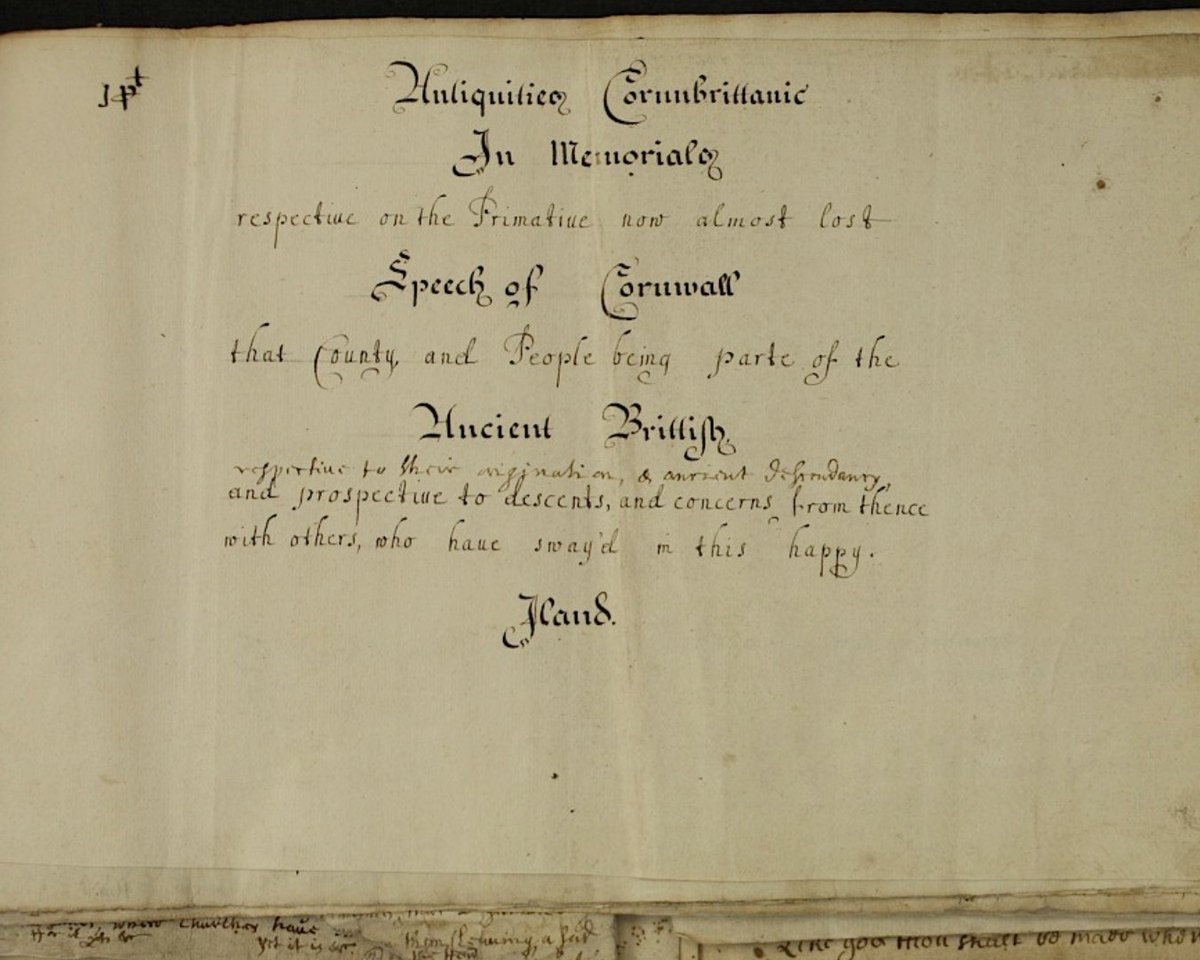 1 pt
Antiquities Cornubrittanic
In Memoriales
respective on the Primative now almost lost
Speech of Cornwall
that County, and People being parte of the
Ancient Brittish,
respective to their origination, & ancient descendancy,
and prospective to descents, and concerns from thence
with others, who haue sway'd in this happy.
Iland.
where Churches haue
yet it is
Like god thou shalt be made who